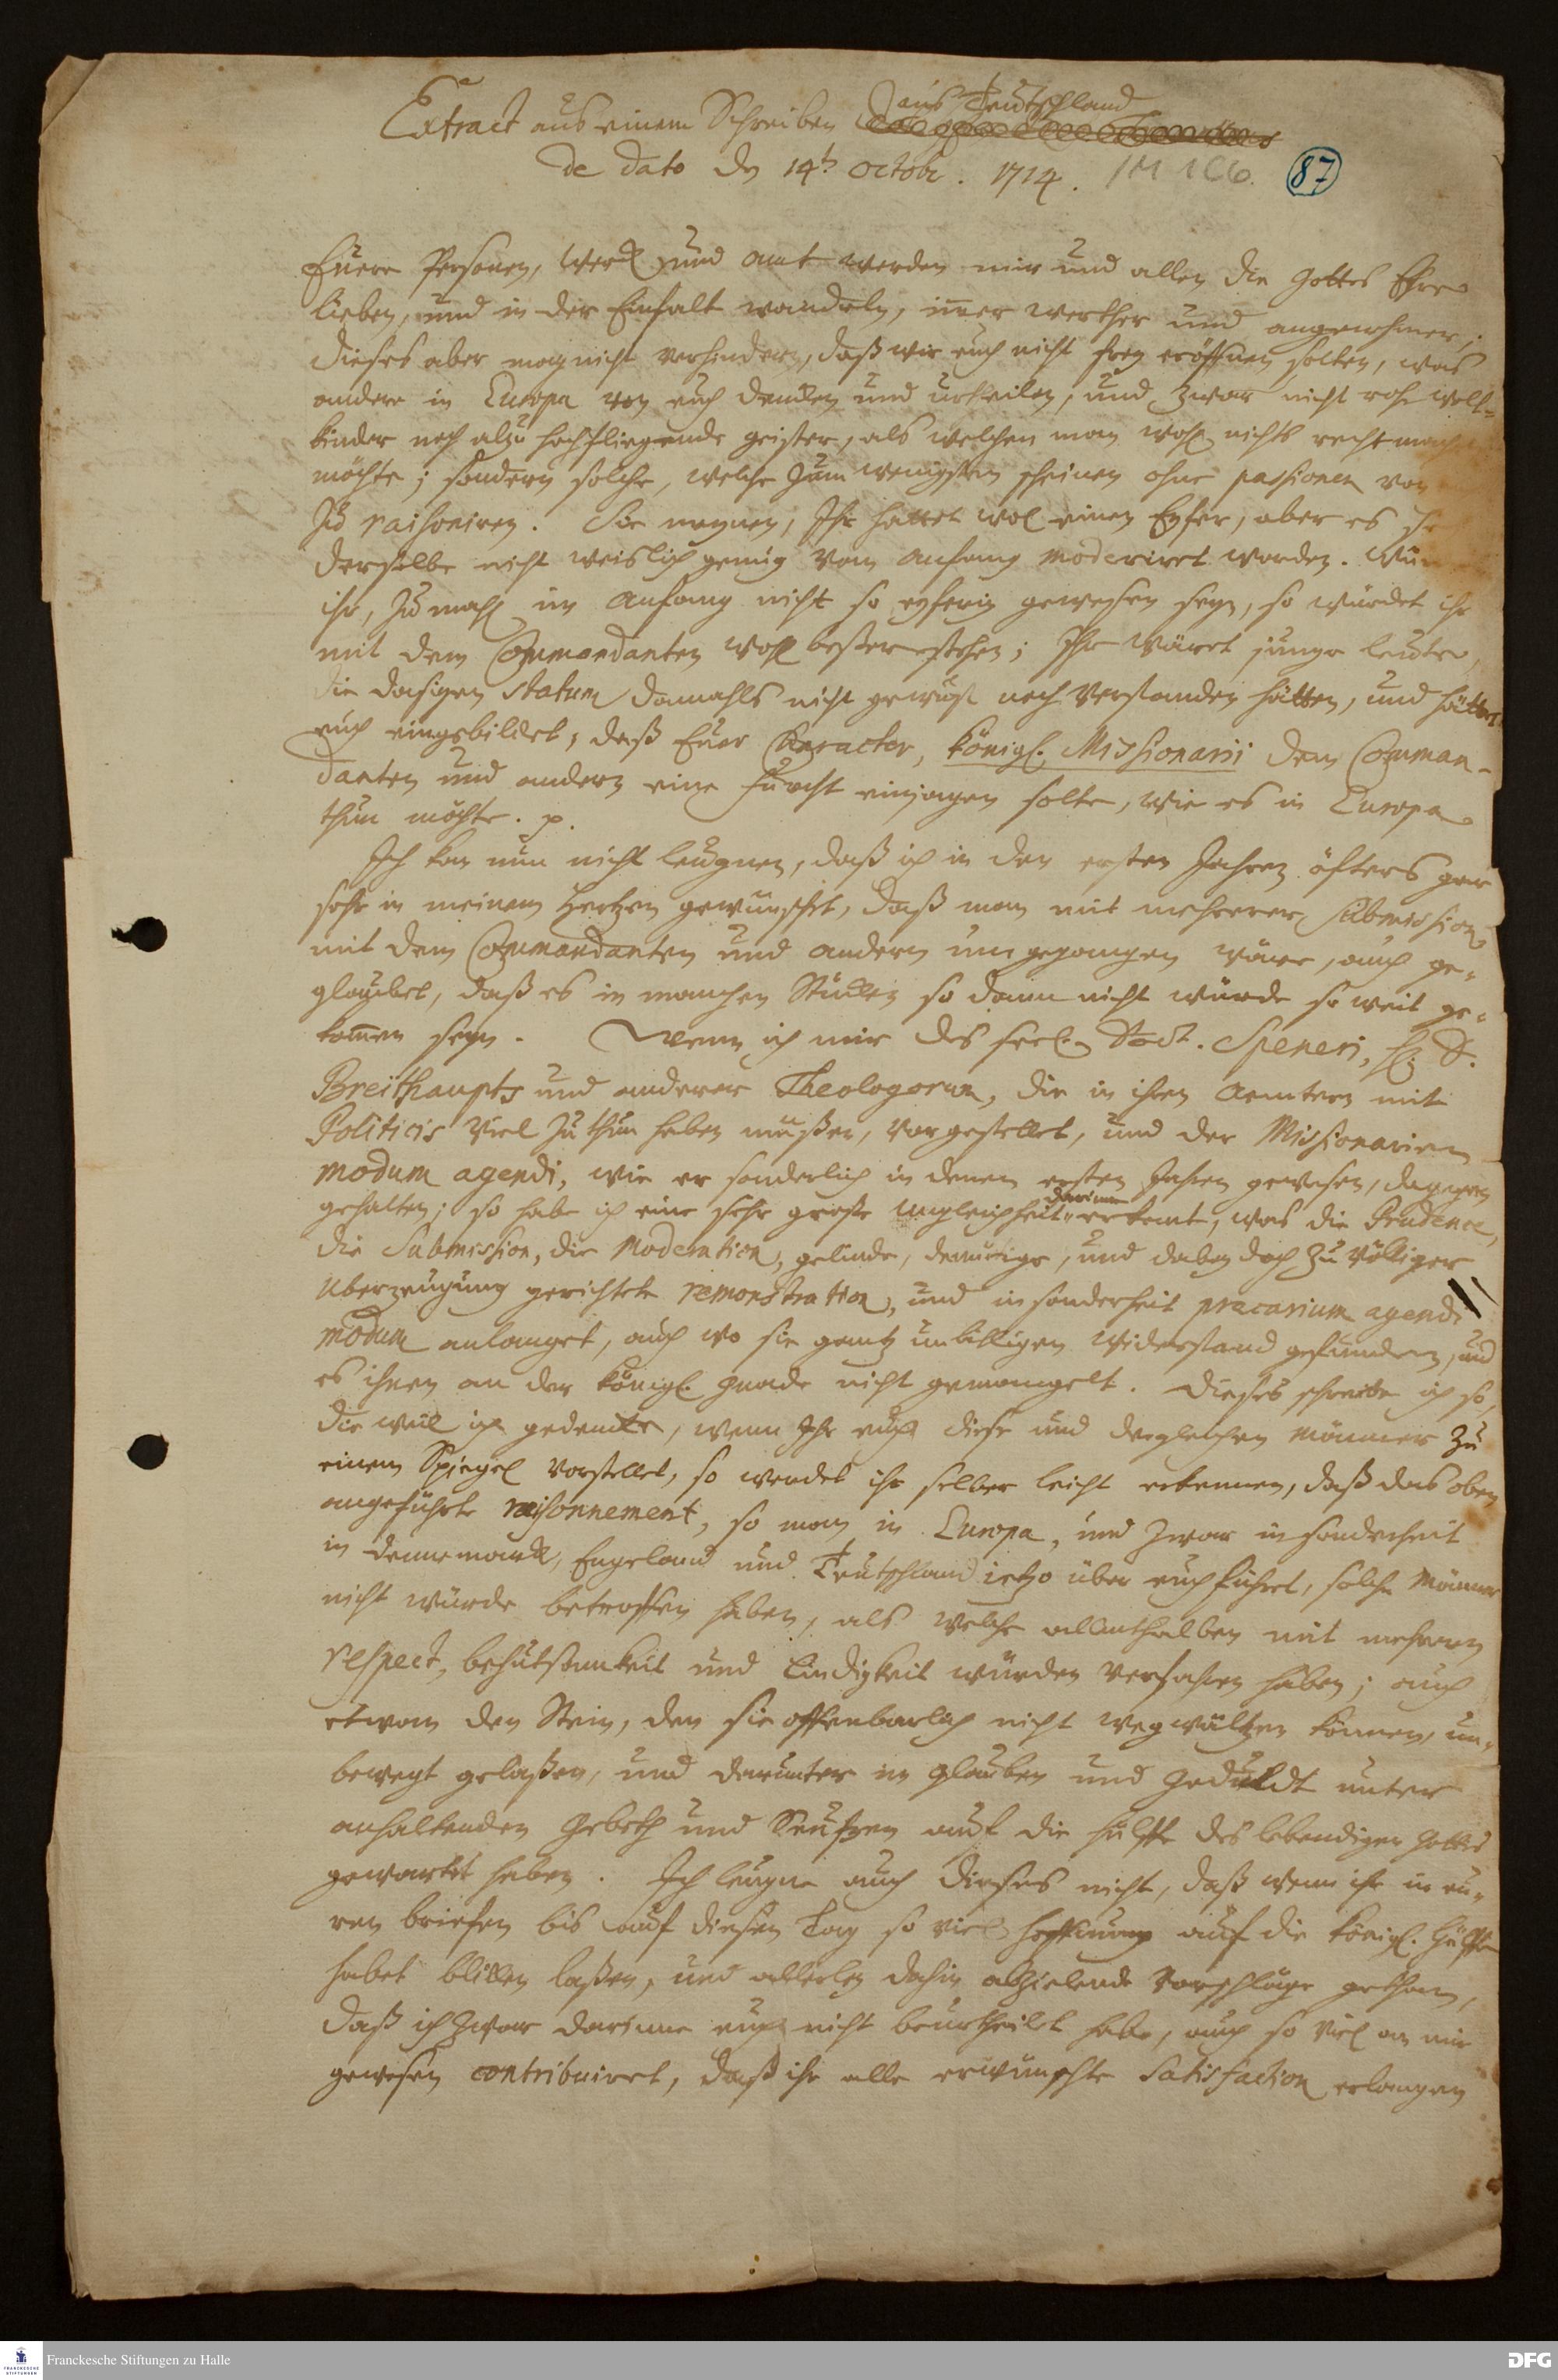 Extract aus einem Schreiben aus Teutschland
de dato den 14t. Octobr. 1714. 1M 1C6. 87
Euere Personen, Werck und Amt werden mir und allen die Gottes Ehre
lieben, und in der Einfalt wandeln, im̅er werther und angenehmer;
dieses aber mag nicht verhindern, daß wir euch nicht frey eröffnen solten, was
andere in Europa von euch dencken und urtheilen, und zwar nicht rohe Welt-
kinder noch alzu hochfliegende geister, als welchen man wohl nichts recht mach
möchte; sondern solche, welche zum wenigsten scheinen ohne passionen von
zu raisoniren. Sie meynen, Ihr hättet wol einen Eyfer, aber es
derselbe nicht weislich genug vom Anfang moderiret worden.
ihr, zumahl im Anfang nicht so eyferig gewesen seyn, so würdet ihr
mit dem Commandanten wohl besser stehen; Ihr wäret junge leute,
die dasigen statum damahls nicht gewust noch verstanden hätten, und hättet
euch eingebildet, daß Euer Character, königl. Missionarii dem Comman-
danten und andern eine Furcht einjagen solte, wie es in Europa
thun möchte. p.
Ich kan nun nicht leugnen, daß ich in den ersten Jahren öfters gar
sehr in meinem Hertzen gewünschet, daß man mit mehrerer Submission
mit dem Commandanten und andern umgegangen wäre, auch ge-
glaubet, daß es in manchen Stücken so dann nicht würde so weit ge-
kom̅en seyn. Wenn ich mir des seel. Doct. Speneri, H. D.
Breithaupts und anderer Theologorum, die in ihren Aemtern mit
Politicis viel zu thun haben müßen, vorgestellet, und der Missionarien
modum agendi, wie er sonderlich in denen ersten Jahren gewesen, dagegen
gehalten; so habe ich eine sehr große Ungleichheit darinne erkent, was die Prudence,
die Submission, die Moderation, gelinde, demütige, und dabey doch zu völliger
Uberzeugung gerichtete remonstration, und insonderheit precarium agendi
modum anlanget, auch wo sie gantz unbilligen Widerstand gefunden, und
es ihnen an der königl. Gnade nicht gemangelt. Dieses schreibe ich so,
die weil ich gedencke, wenn Ihr euch diese und dergleichen Männer zu
einem Spiegel vorstellet, so werdet ihr selber leicht erkennen, daß das oben
angeführte raisonnement, so man in Europa, und zwar insonderheit
in Dennemarck, Engeland und Teutschland ietzo über euch führet, solche Männer
nicht würde betroffen haben, als welche allenthalben mit mehrern
respect, behutsamkeit und Lindigkeit würden verfahren haben; auch
etwan den Stein, den sie offenbarlich nicht wegwältzen können, un-
bewegt gelaßen, und darunter im Glauben und Geduldt unter
anhaltenden Gebeth und Seufzen auf die Hülffe des lebendigen Gottes
gewartet haben. Ich leugne auch dieses nicht, daß wenn ihr in eu-
ren briefen bis auf diesen Tag so viel hoffnung auf die königl. Hülffe
habet blicken laßen, und allerley dahin abzielende Vorschläge gethan,
daß ich zwar darinne euch nicht beurtheilet habe, auch so viel an mir
gewesen contribuiret, daß ihr alle erwünschte Satisfaction erlangen
Franckesche Stiftungen zu Halle
DFG